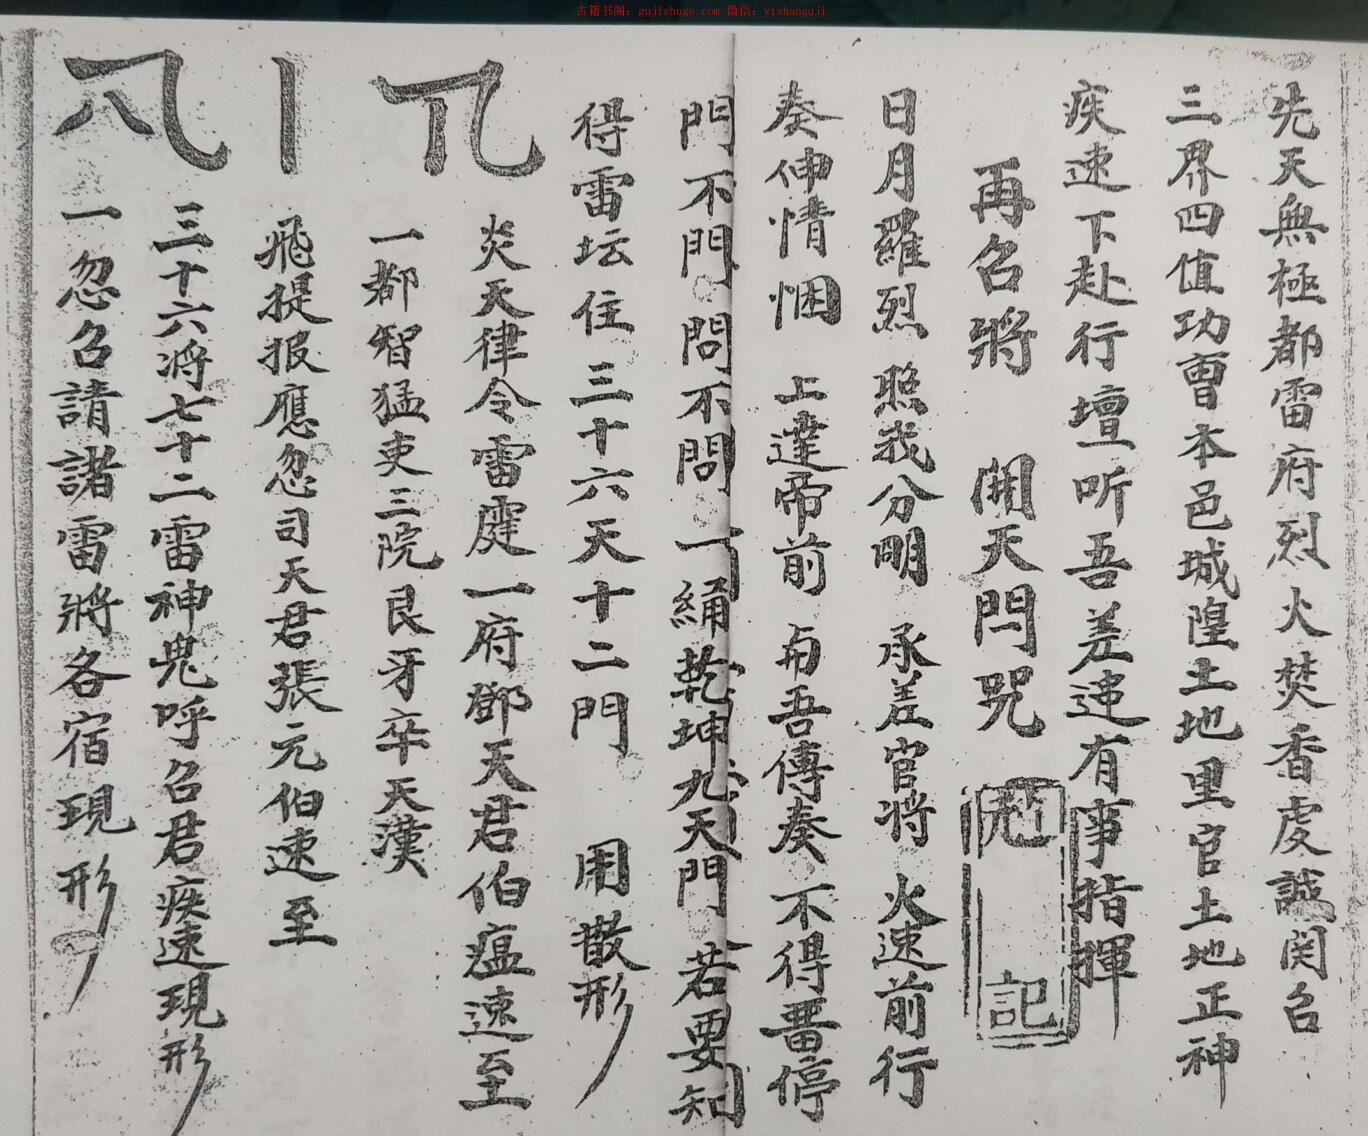 古籍书阁：gujishuge.com 微信：yishanguji
先天無極都雷府烈火焚香虔誠関召
三界四值功曹本邑城隍土地里官土地正神
疾速下赴行壇听吾差遣有事指揮
再召將 開天門咒
記
日月羅烈 照我分明 承差官将 火速前行
奏伸情悃 上達帝前 与吾傳奏 不得畱停
門不門 問不問 一 乾坤九天門 若要知
得雷坛住三十六天十二門 用散形
炎天律令雷霆一府鄧天君伯瘟速至
一都智猛吏三院良牙卒天漢
飛提报應忽司天君張元伯速至
三十六将七十二雷神鬼呼召君疾速現形
一忽召請諸雷將各宿現形